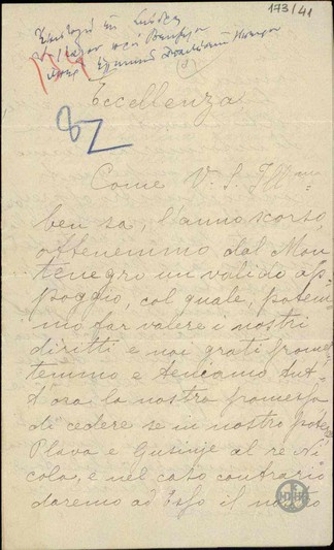 173/41
Ἐπιστολὴ ἐκ
82
Eccellenza
Come V. S. Ill.ma
ben sa, l'anno scorso
ottenemmo dal Mon
tenegro un valido ap
poggio, col quale, potem
mo far valere i nostri
diritti e noi grati prome
temmo e teniamo tut
t'ora la nostra promessa
di cedere se in nostro potere
Plava e Gusinje al re Ni
cola, e nel caso contrario
daremo ad Esso il nostro